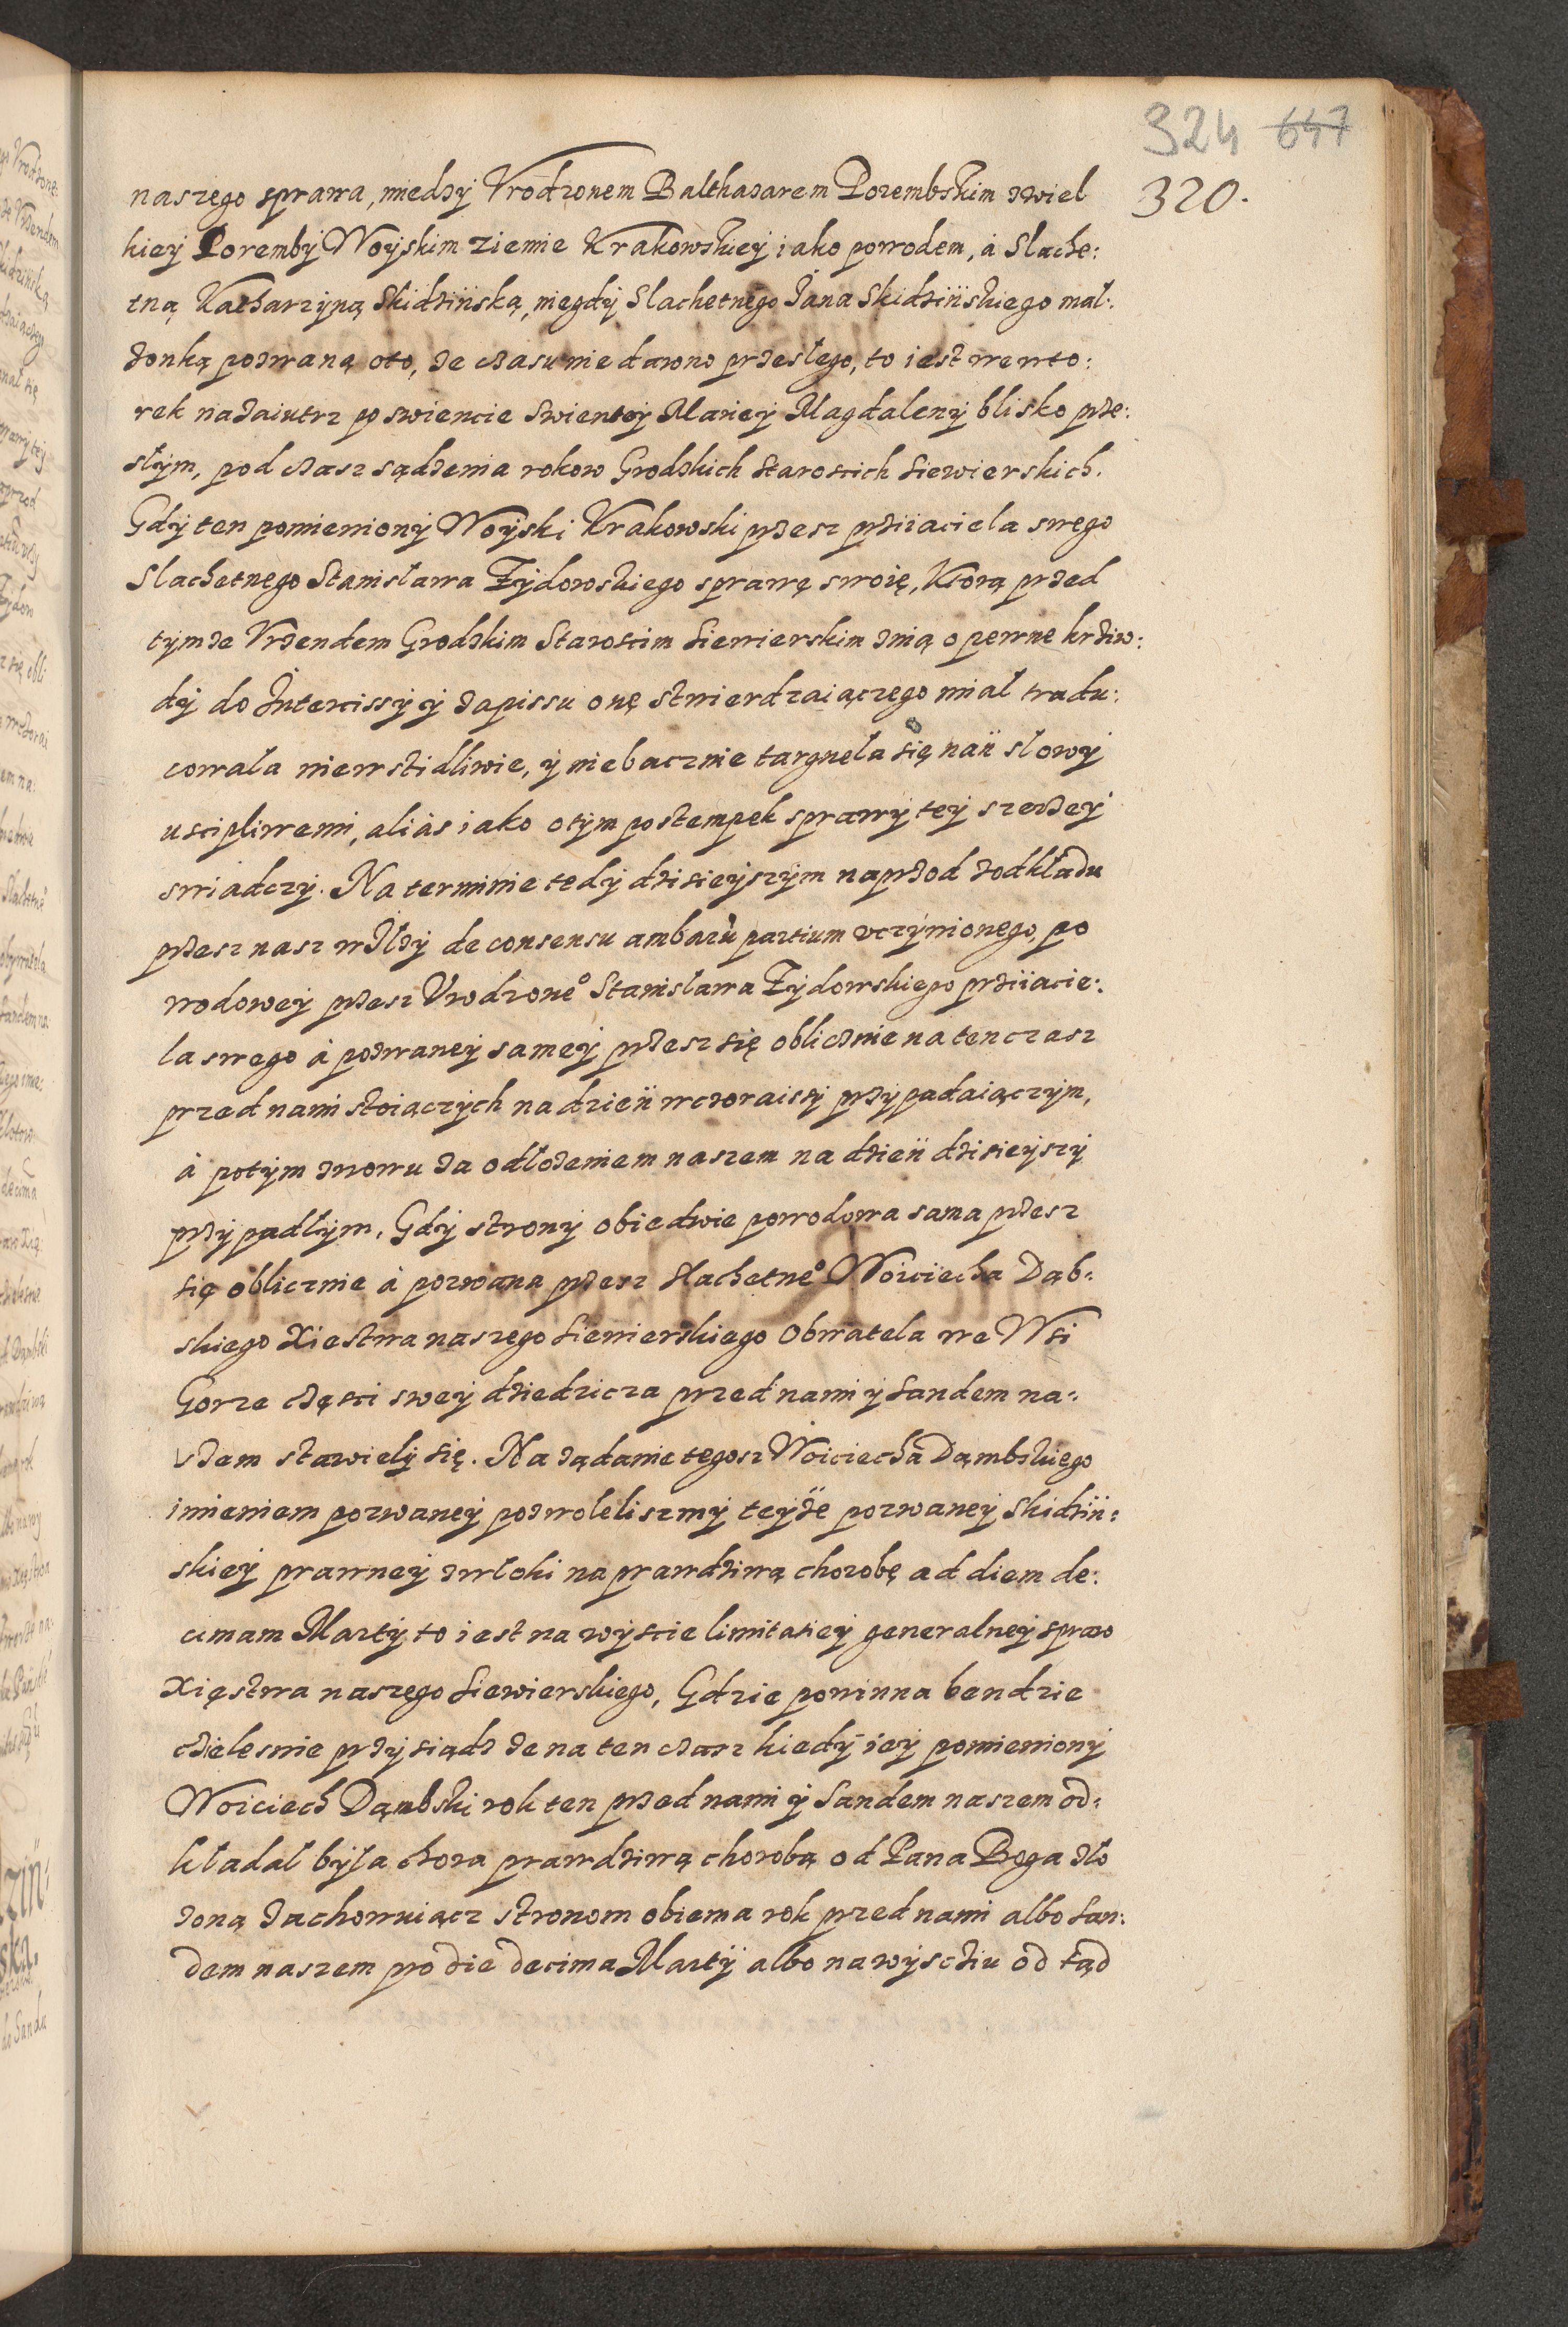 324 647
320.
naszego sprawa, miedzy Vrodzonem Balthazarem Porembskim zwiel
kiey Poremby Woyskim ziemie Krakowskiey iako powodem, à Slache:
tną Katharzyną Skidzińską, niegdy Slachetnego Jana Skidzińskiego mał:
żonką pozwaną oto, że czasu nie dawno przeszłego, to iest we wto:
rek nazaiutrz po swiencie swientey Mariey Magdaleny blisko prze:
słym, pod czasz sądzenia rokow Grodzkich Staroscich Siewierskich.
Gdy ten pomieniony Woyski Krakowski przesz prziiaciela swego
Slachetnego Stanisława Zydowskiego sprawę swoię, Ktorą przed
tymże Vrzendem Grodzkim Staroscim Siewierskim znią o pewne krziw:
dy do Intercissyi y zapissu onę stwierdzaiączego miał tradu:
cowała niewstidliwie, y niebacznie targnęła się nań słowy
uscipliwemi, aliàs iako otym postempek sprawy tey szerzey
swiadczy. Na terminie tedy dzisieyszym naprzod zodkładu
przesz nasz wzłzy de consensu ambarũ partium vczynionego, po
wodowey przesz Vrodzone° Stanisława Zydowskiego prziiacie:
la swego à pozwaney samey przesz się oblicznie na ten czasz
przed nami stoiączych na dzień wczoraiszy przypadaiączym,
à potym znowu za odłożeniem naszem na dzień dzisieyszy
przypadłym. Gdy strony obiedwie powodowa sama przesz
się oblicznie à pozwana przesz slachetne° Woiciecha Dąb-
skiego Xiestwa naszego Siewierskiego Obwatela we Wsi
Gorze częsci swey dziedzicza przed nami y Sandem na-
szem stawiely się. Na żądanie tegosz Woiciecha Dąmbskiego
imieniem pozwaney pozwoleliszmy teyże pozwaney Skidziń-
skiey prawney zwłoki na prawdziwą chorobę ad diem de:
cimam Marty to iest na wyscie limitatiey generalney spraw
Xięstwa naszego Siewierskiego, Gdzie powinna bendzie
czielesnie przysiądz że na ten czasz kiedy iey pomieniony
Woiciech Dąmbski rok ten przed nami y Sandem naszem od-
kładał była chora prawdziwą chorobą od Pana Boga zło
żoną zachowuiącz stronom obiema rok przed nami albo San:
dem naszem pro die decima Martÿ albo na wysciu od tąd